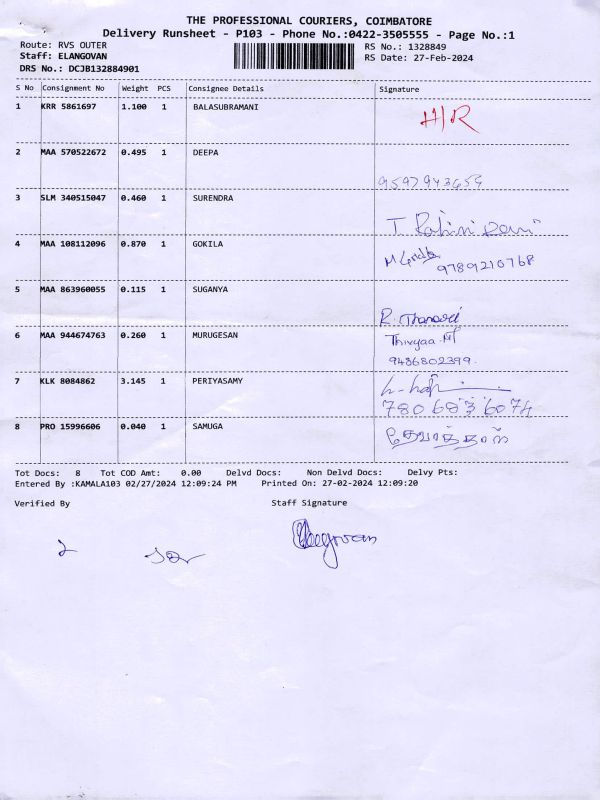 THE PROFESSIONAL COURIERS, COIMBATORE
Delivery Runsheet - P103 - Phone No.:0422-3505555 - Page No.:1
Route: RVS OUTER
Staff: ELANGOVAN
DRS No.: DCJB132884901
RS No.: 1328849
RS Date: 27-Feb-2024
S No Consignment No Weight PCS Consignee Details Signature
1 KRR 5861697 1.100 1 BALASUBRAMANI H/R
2 MAA 570522672 0.495 1 DEEPA
9597943659
3 SLM 340515047 0.460 1 SURENDRA
T.
4 MAA 108112096 0.870 1 GOKILA M
9789210768
5 MAA 863960055 0.115 1 SUGANYA
R.
6 MAA 944674763 0.260 1 MURUGESAN Thivyaa.M
9486802399.
7 KLK 8084862 3.145 1 PERIYASAMY
8 PRO 15996606 0.040 1 SAMUGA
Tot Docs: 8 Tot COD Amt: 0.00 Delvd Docs: Non Delvd Docs: Delvy Pts:
Entered By :KAMALA103 02/27/2024 12:09:24 PM Printed On: 27-02-2024 12:09:20
Verified By Staff Signature